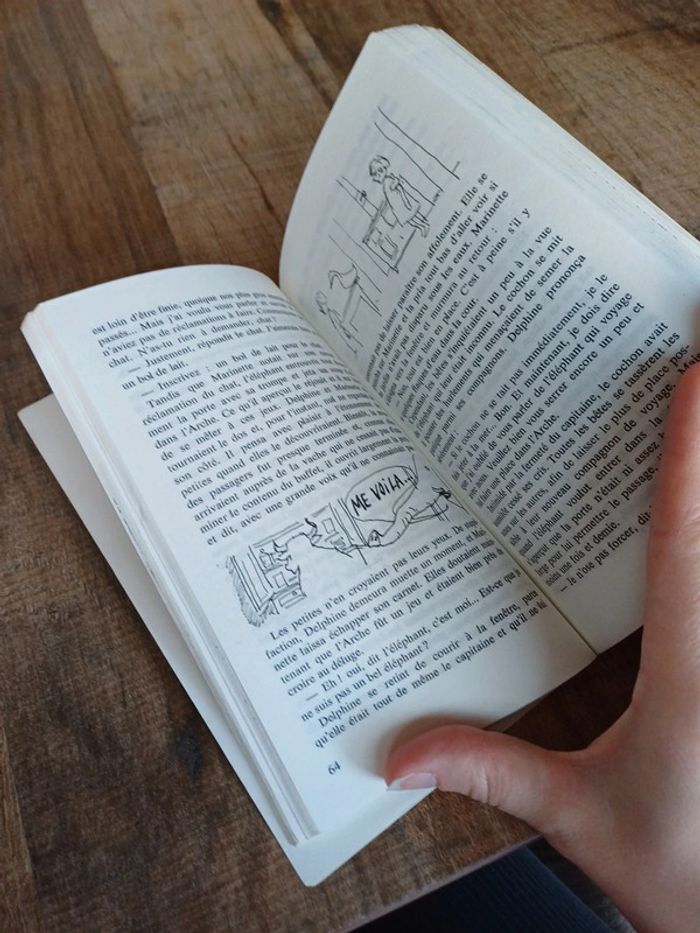 est loin d'être finie, quoique nos plus gros
passés... Mais j'ai voulu vous parler
n'aviez pas de réclamations à faire.
chat. N'as-tu rien à demander, chat?
— Justement, répondit le chat. J'aimerais
un bol de lait.
— Inscrivez : un bol de lait
Tandis que Marinette notait sur
réclamation du chat, l'éléphant
ment la porte avec sa trompe et
dans l'Arche. Ce qu'il aperçut le
de se mêler à ces jeux. Delphine et
tournaient le dos et, pour l'instant,
son côté. Il pensa avec plaisir à l'étonnement
petites quand elles le découvriraient.
des passagers fut presque terminée et, comme
arrivaient auprès de la vache qui ne cessait
miner le contenu du buffet, il ouvrit largement
et dit, avec une grande voix qu'il ne connaissait
ME VOILA...
Les petites n'en croyaient pas leurs yeux. De
faction, Delphine demeura muette un moment, et
nette laissa échapper son carnet. Elles doutaient
tenant que l'Arche fût un jeu et étaient bien
croire au déluge.
— Eh ! oui, dit l'éléphant, c'est moi... Est-ce que je
ne suis pas un bel éléphant?
Delphine se retint de courir à la fenêtre,
qu'elle était tout de même le capitaine et qu'il ne
64
de laisser paraître son affolement. Elle se
Marinette et la pria tout bas d'aller voir si
n'avait pas disparu sous les eaux. Marinette
fenêtre et murmura au retour :
Non, tout est bien en place. C'est à peine s'il y
d'eau dans la cour.
les bêtes s'inquiétaient un peu à la vue
éléphant qui leur était inconnu. Le cochon se mit
des hurlements qui menaçaient de semer la
panique parmi ses compagnons. Delphine prononça
— Si le cochon ne se tait pas immédiatement, je le
jeter à la mer... Bon. Et maintenant, je dois dire
que j'ai oublié de vous parler de l'éléphant qui voyage
avec nous. Veuillez bien vous serrer encore un peu et
une place dans l'Arche.
par la fermeté du capitaine, le cochon avait
cessé ses cris. Toutes les bêtes se tassèrent les
unes sur les autres, afin de laisser le plus de place
à leur nouveau compagnon de voyage.
l'éléphant voulut entrer dans la
s'aperçut que la porte n'était ni assez
large pour lui permettre le passage,
moins une fois et demie.
— Je n'ose pas forcer, dit